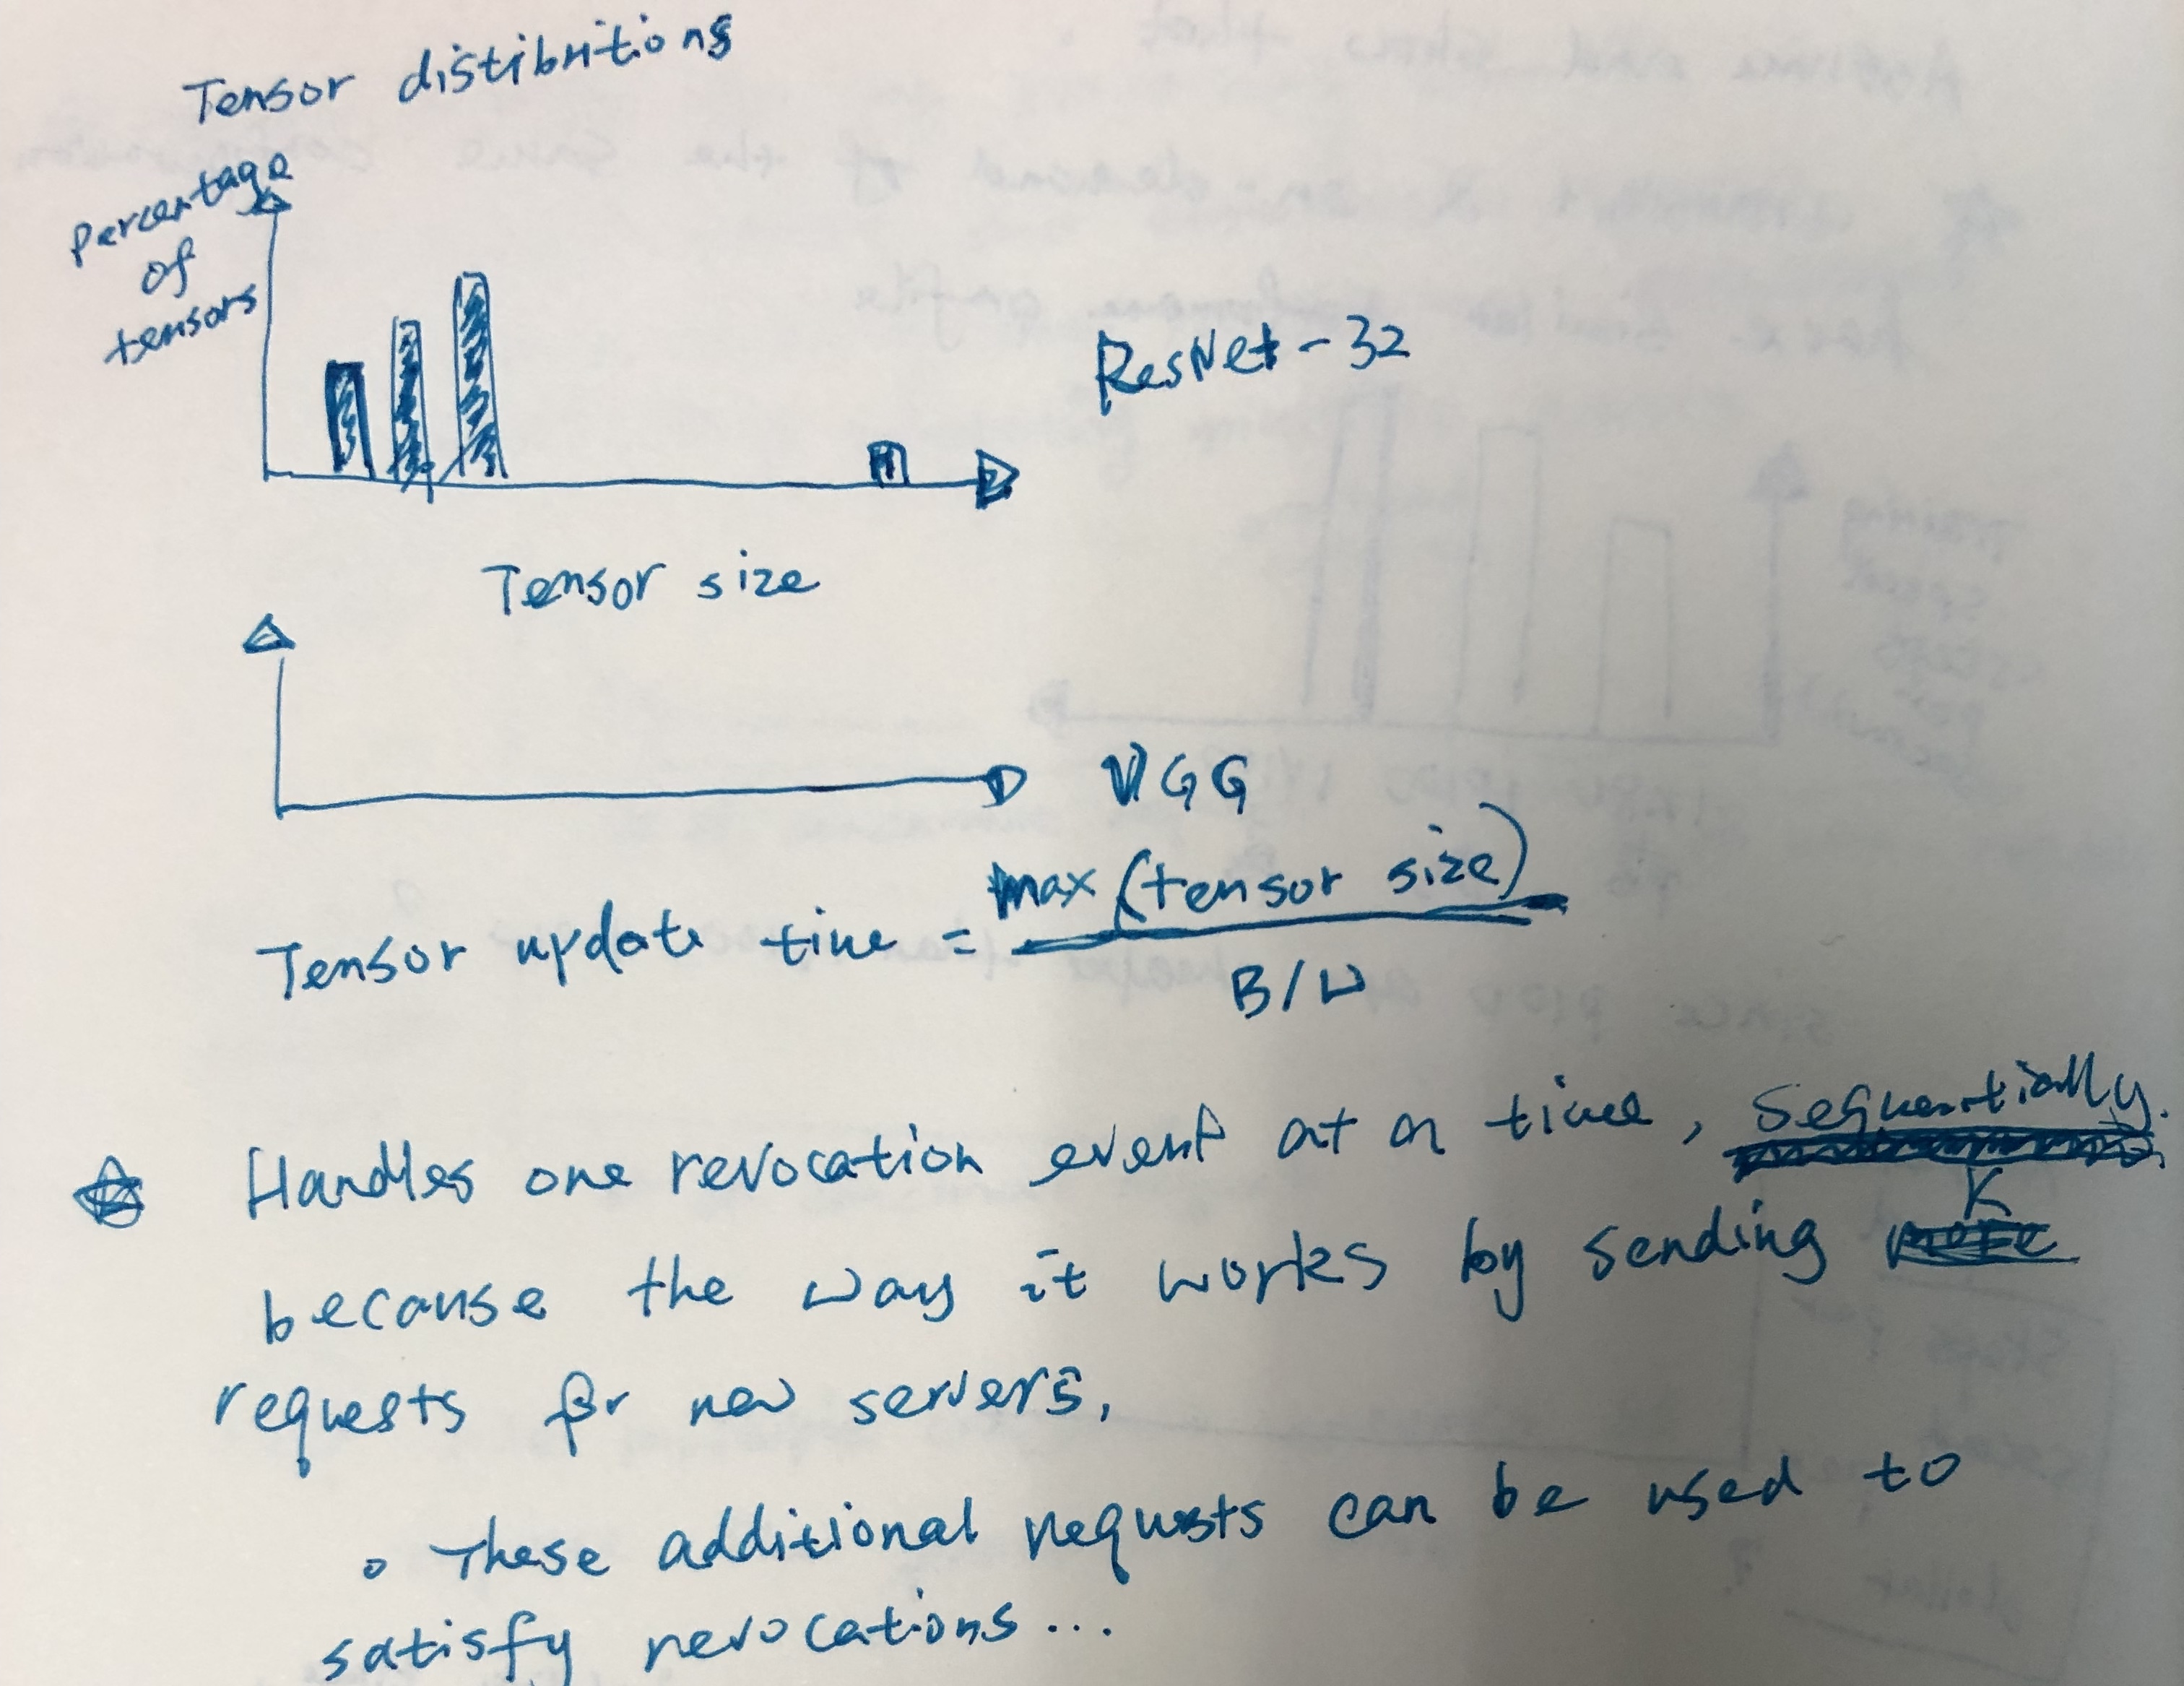 Tensor distibritions
Percentage
of
tensors
ResNet-32
Tensor size
VGG
Tensor update time = max (tensor size)
B/W
Handles one revocation event at a time, sequentially.
K
because the way it works by sending more
requests for new servers,
These additional requests can be used to
satisfy revocations...